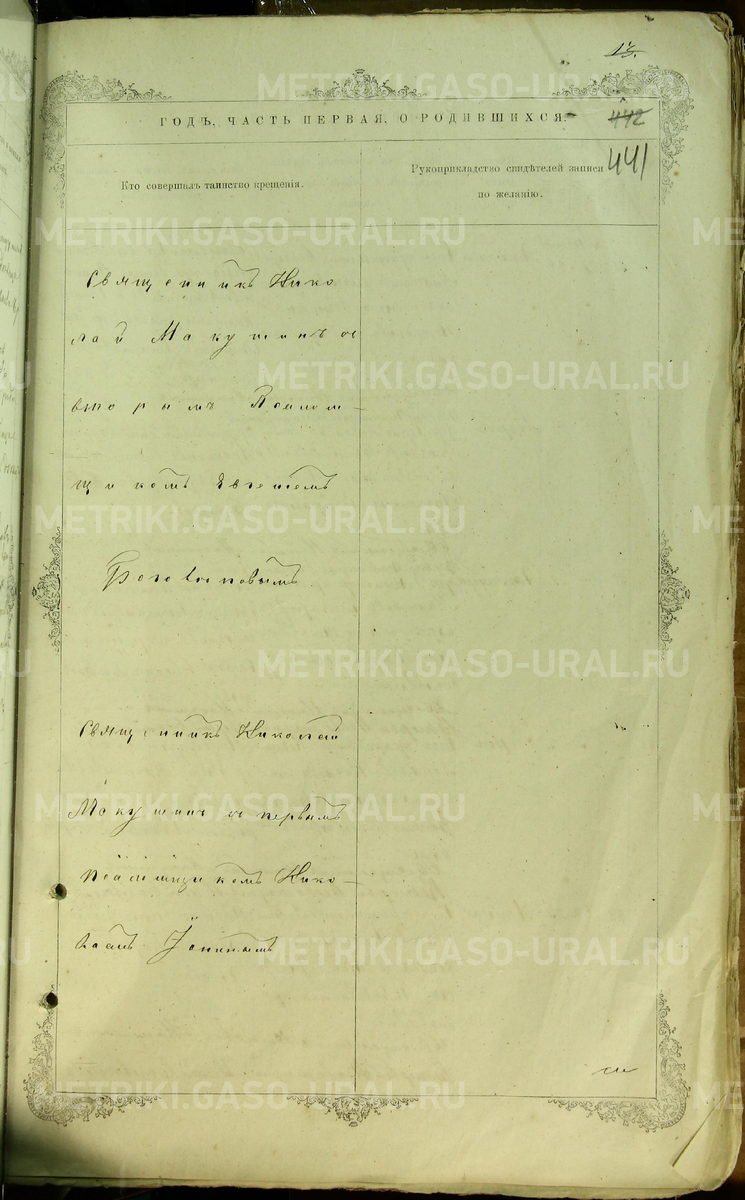 13.
ГОДЪ, ЧАСТЬ ПЕРВАЯ, О РОДИВШИХСЯ.
442
441
Кто совершалъ таинство крещенія.
Рукоприкладство свидѣтелей записи
по желанію.
Священникъ Нико
лай Макушинъ съ
вторымъ Псалом-
щикомъ Евгеніемъ
Священникъ Николай
Макушинъ съ первымъ
псаломщикомъ Нико-
лаемъ
METRIKI.GASO-URAL.RU